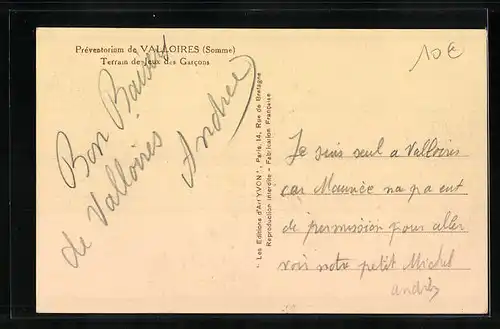 Préventorium de VALLOIRES (Somme)
Terrain de Jeux des Garçons
10€
Bon Baiser
de Valloires
Andrée
" Les Editions d'Art YVON ", Paris, 14, Rue de Bretagne
Reproduction interdite - Fabrication Française
Je suis seul a Valloires
car Maurice na pa eut
de permission pour aller
voir notre petit Michel
Andrée